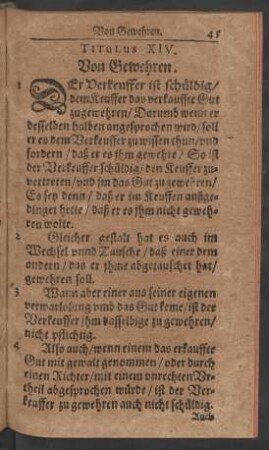 Von Gewehren. 45
TITULUS XIV.
Von Gewehren.
1 DEr Verkeuffer ist schüldig/
dem Keuffer das verkauffte Gut
zugewehren/ Darumb wenn er
desselben halben angesprochen wird/ soll
er es dem Verkeuffer zu wissen thun/ vnd
fordern/ daß er es jhm gewehre/ So ist
der Verkeuffer schüldig/ den Keuffer zu-
vertreten/ vnd jm das Gut zu gewehren/
Es sey denn/ daß er im Keuffen außge-
dinget hette/ daß er es jhm nicht geweh-
ren wolte.
2 Gleicher gestalt hat es auch im
Wechsel vnnd Tausche/ daß einer dem
andern/ das er jhme abgetauschet hat/
gewehren soll.
3 Wann aber einer aus seiner eigenen
verwarlosung vmb das Gut keme/ ist der
Verkeuffer jhm dasselbige zu gewehren/
nicht pflichtig.
4 Also auch/ wenn einem das erkauffte
Gut mit gewalt genommen/ oder durch
einen Richter/ mit einem vnrechten Vr-
theil abgesprochen würde/ ist der Ver-
keuffer zu gewehren auch nicht schüldig.
Auch